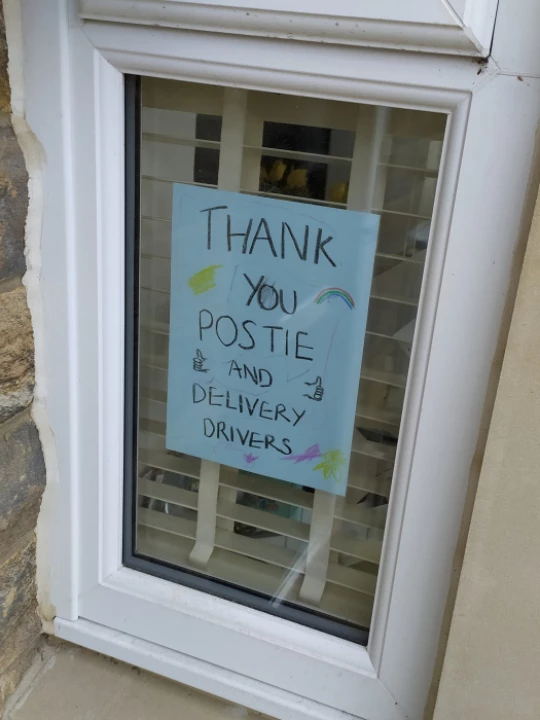 THANK
YOU
POSTIE
AND
DELIVERY
DRIVERS